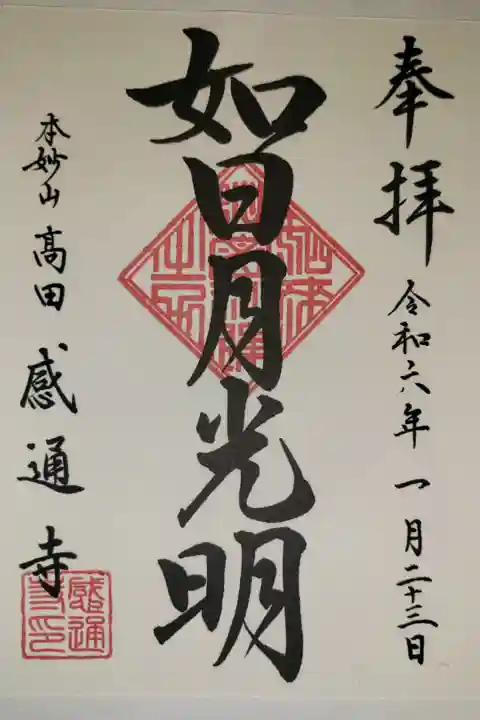 奉拝
令和六年一月二十三日
如日月光明
本妙山 高田 感通寺
感通寺印